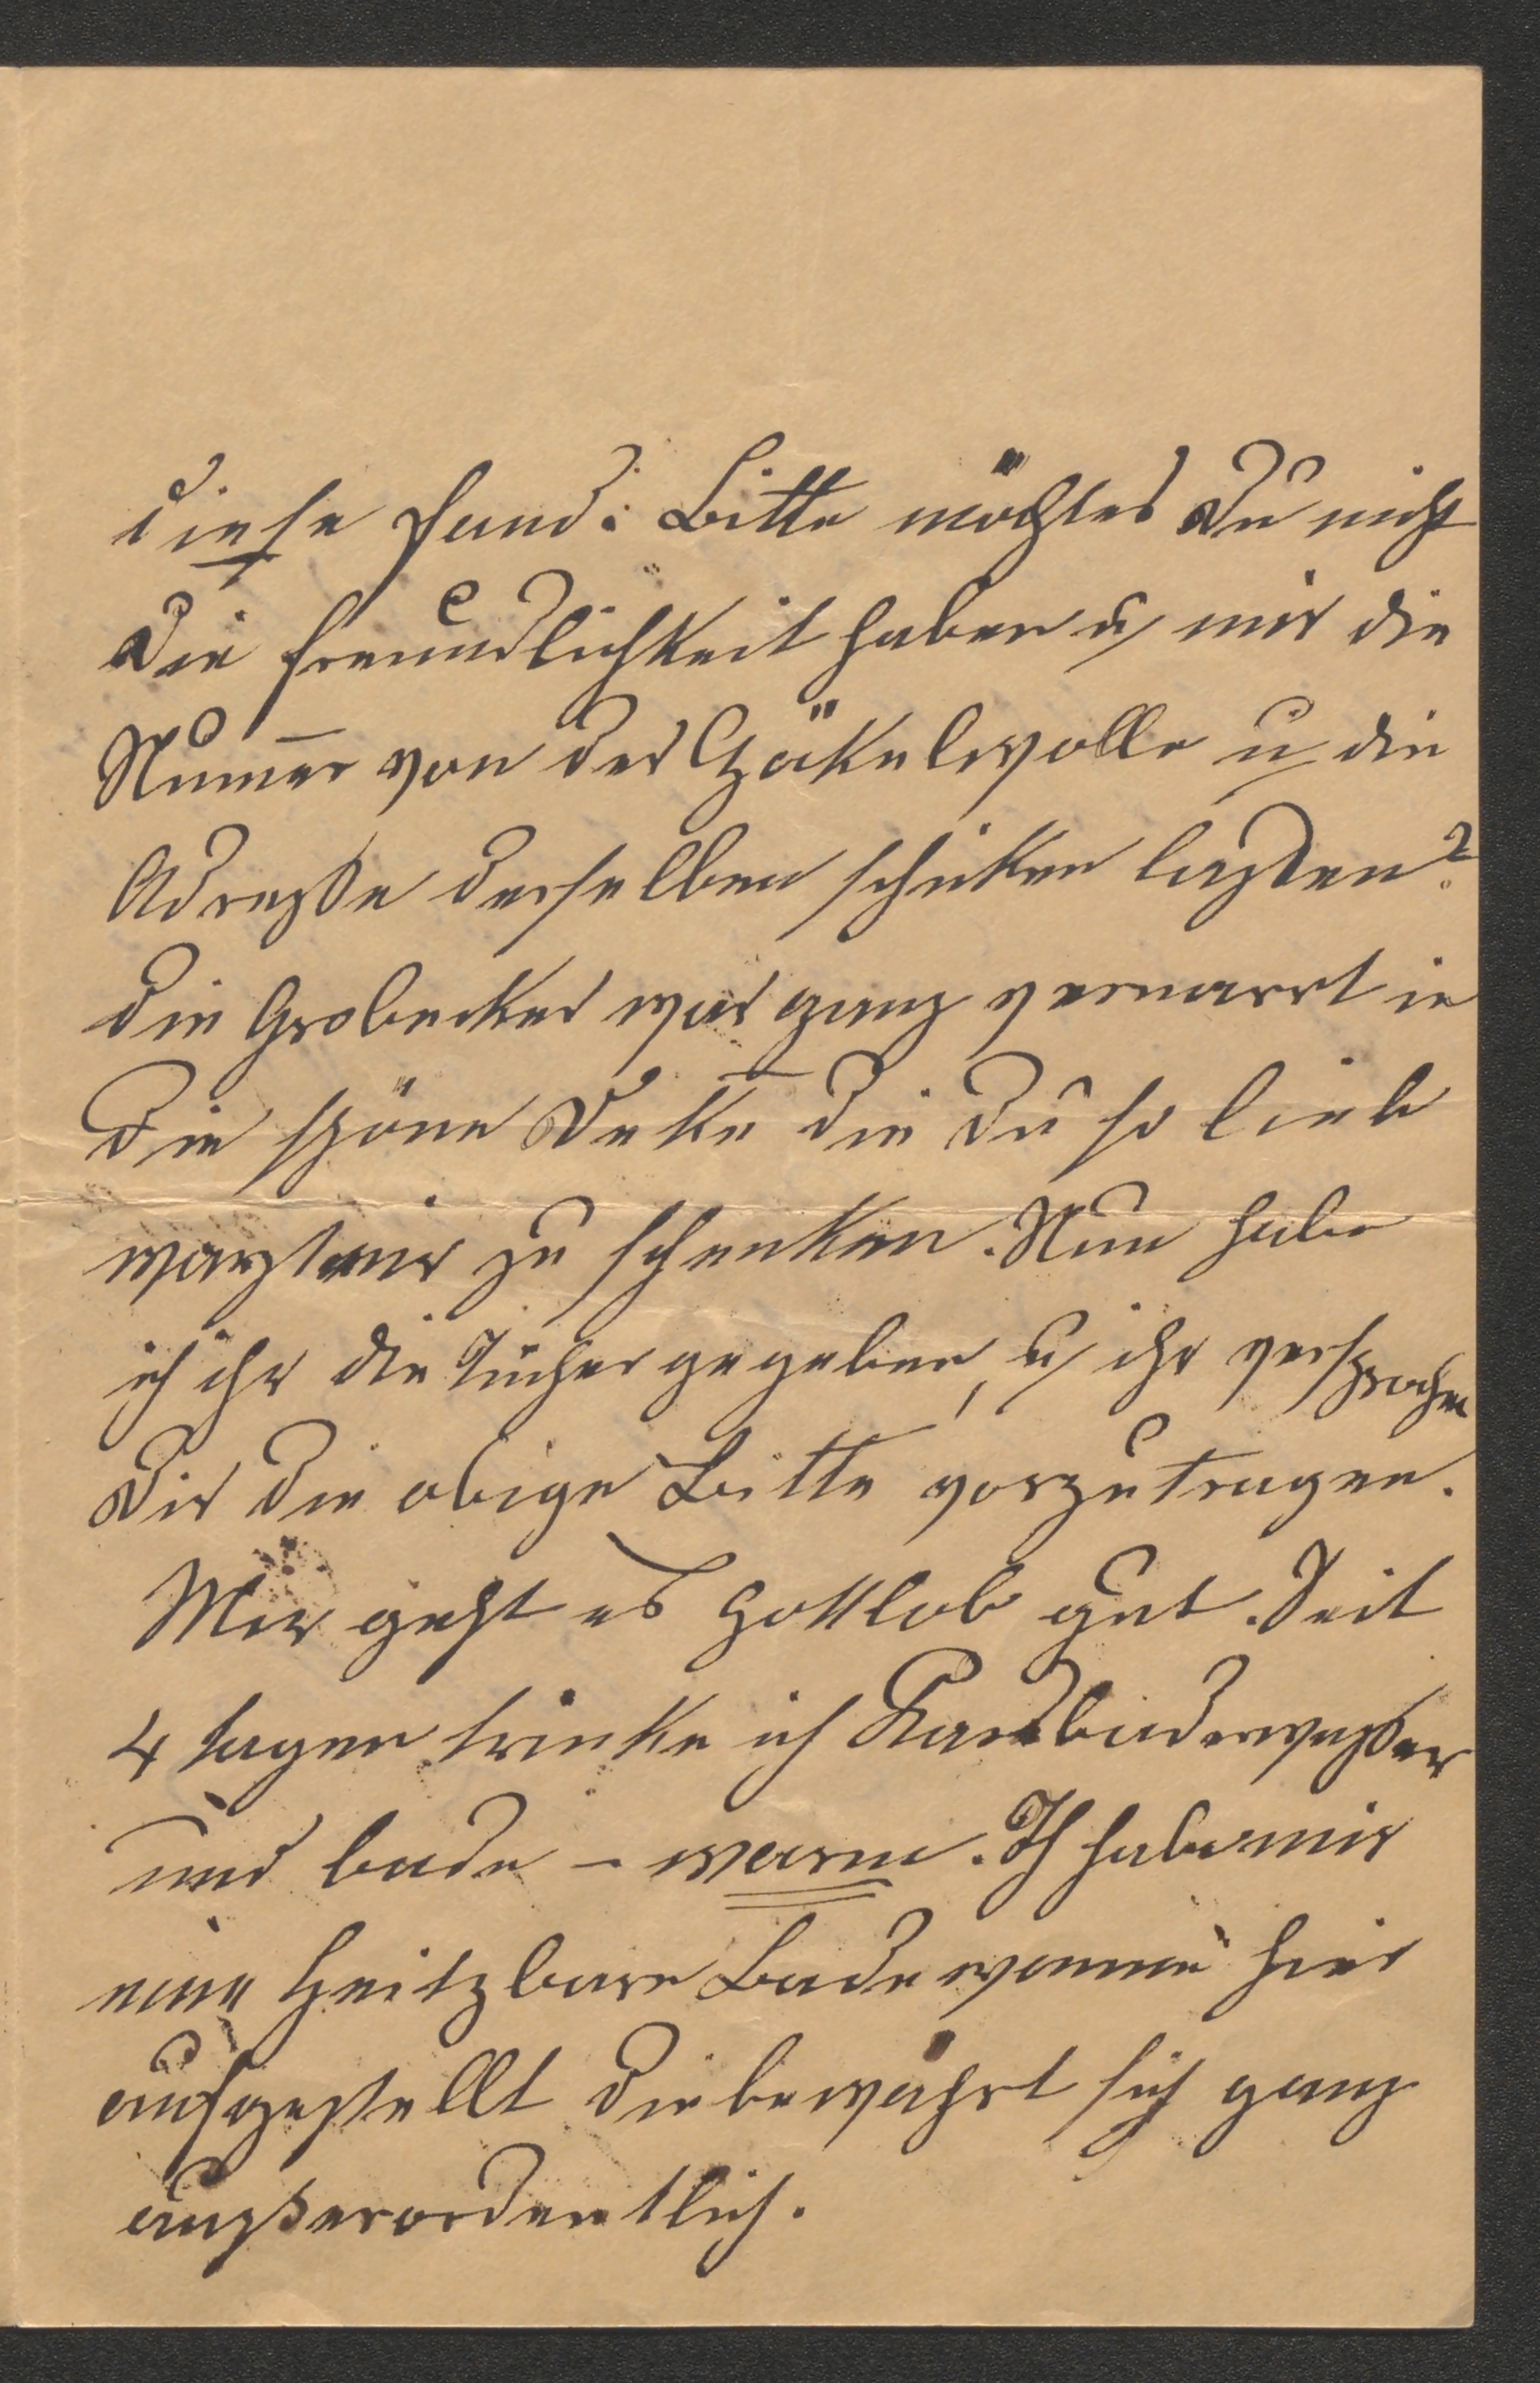 diese fand: Bitte möchtes Du nicht
die Freundlichkeit haben u mir die
Num̄er von der Häkelwolle u die
Adreße derselben schiken laßen?
die Grobecker war ganz vernarrt in
die schöne Deke die Du so lieb
warst mir zu schenken. Nun habe
ich ihr die Tücher gegeben, u ihr versprochen
Dir die obige Bitte vorzutragen.
Mir geht es Gottlob gut. Seit
4 tagen trinke ich
und bade – warm. Ich habe mir
eine heitzbare Badewanne hier
aufgestellt die bewährt sich ganz
außerordentlich.